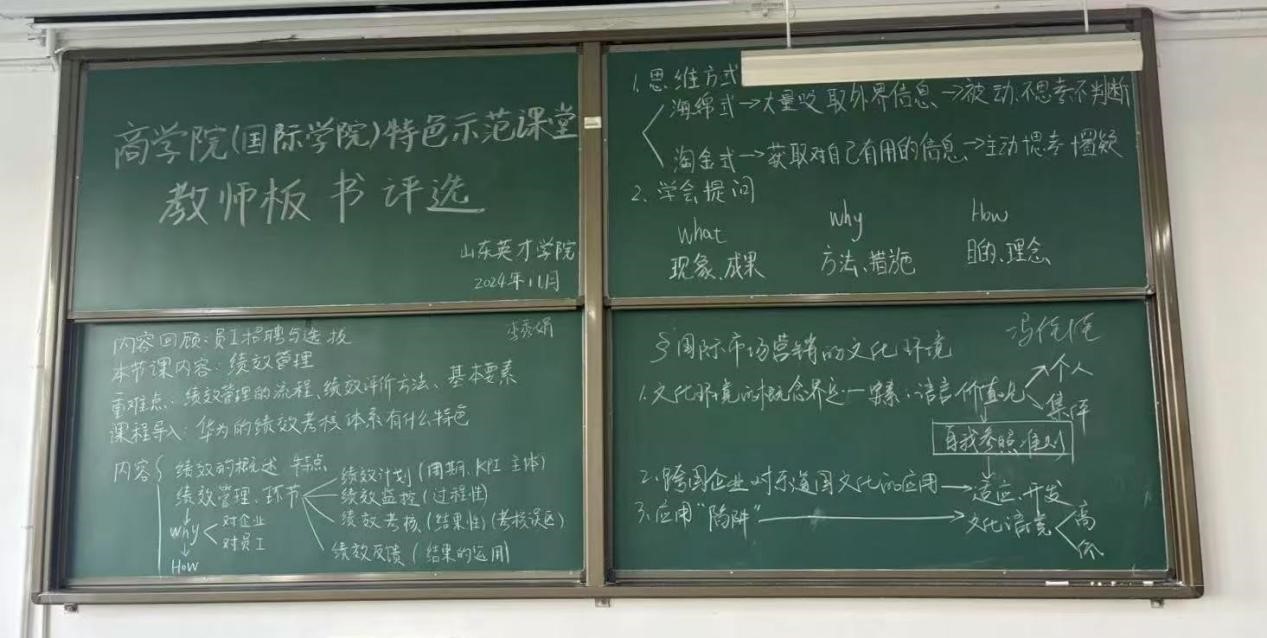 商学院(国际学院)特色示范课堂
教师板书评选
山东英才学院
2024年11月
1.思维方式
海绵式→大量吸取外界信息→被动.不思考不判断
淘金式→获取对自己有用的信息→主动思考 懵疑
2.学会提问
what why How
现象、成果 方法、措施 目的、理念
李秀娟
内容回顾:员工招聘与选拔
本节课内容:绩效管理
重难点:绩效管理的流程、绩效评价方法、基本要素
课程导入:华为的绩效考核体系有什么特色
内容{ 绩效的概述 特点
绩效管理、环节
绩效计划(周期.KPI 主体)
绩效监控(过程性)
绩效考核(结果性)(考核误区)
绩效反馈(结果的运用)
why
对企业
对员工
How
§国际市场营销的文化环境
1.文化环境的概念界定一要素:语言 价值观
个人
集体
自我参照准则
2.跨国企业对东道国文化的应用→适应、开发
3.应用“陷阱”→文化语境
高
低